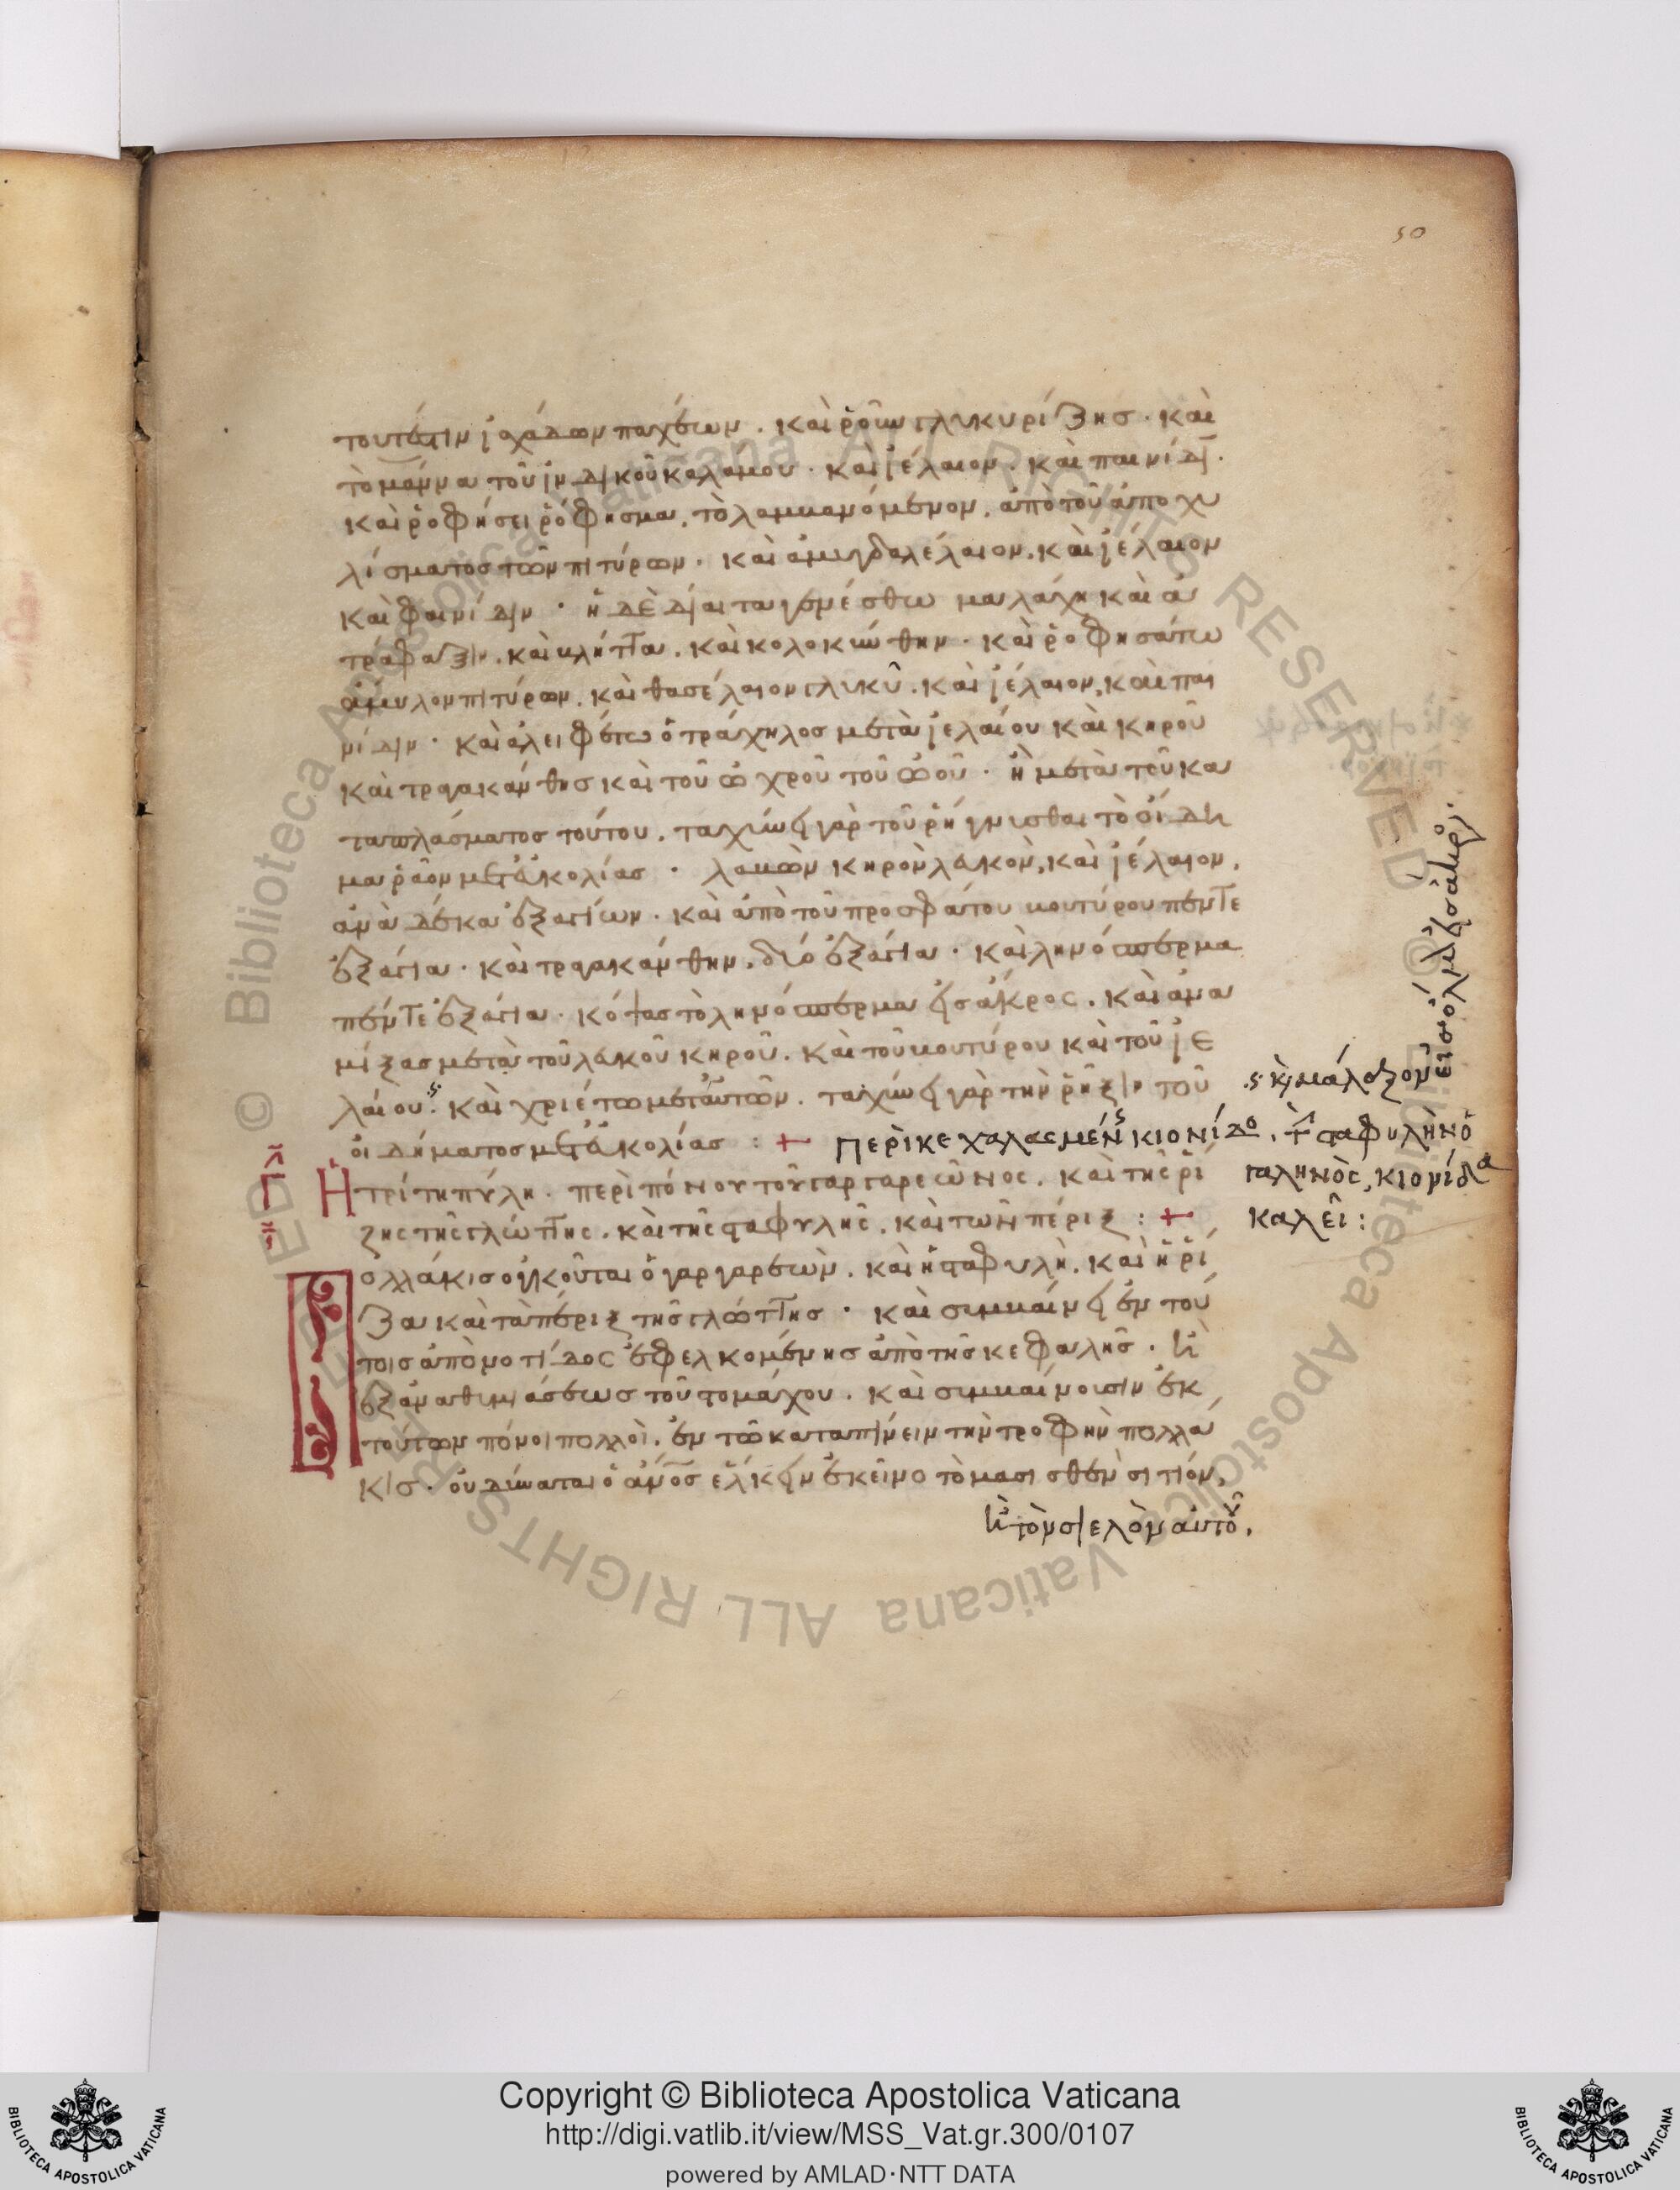 50
τουτέστιν ἰσχάδων παχέων. καὶ ῥοῦν γλυκυρίζης. καὶ
τὸ μάννα τοῦ ἰνδικοῦ καλάμου. καὶ ἰέλαιον. καὶ πανίδι.
καὶ ῥοφήσει ῥόφησμα, τὸ λαμβανόμενον, ἀπὸ τοῦ ἀποχυ
λίσματος τῶν πιτύρων. καὶ ἀμυγδαλέλαιον, καὶ ἰέλαιον
καὶ φανίδιν. ἡ δὲ δίαιτα γενέσθω μαλάχη καὶ ἀ
τράφαξιν. καὶ βλήττα. καὶ κολοκύνθην. καὶ ῥοφησάτω
ἄμυλον πιτύρων. καὶ θασέλαιον γλυκῦ. καὶ ἰέλαιον, καὶ παι
νίδιν. καὶ ἀλειφέτω ὁ τράχηλος μετὰ ἰελαίου καὶ κηροῦ
καὶ τραγακάνθης καὶ τοῦ ὠχροῦ τοῦ ὠοῦ. ἢ μετὰ τοῦ κα
ταπλάσματος τούτου. ταχύνει γὰρ τοῦ ῥήγνυσθαι τὸ οἴδη
μα ῥᾶον μετὰ εὐκολίας. λαβὼν κηρὸν λευκὸν, καὶ ἰέλαιον,
ἀνὰ δέκα ἑξαγίων. καὶ ἀπὸ τοῦ προσφάτου βουτύρου πέντε
ἑξάγια. καὶ τραγακάνθην, δύο ἑξάγια. καὶ λινόσπερμα
πέντε ἑξάγια. κόψας τὸ λινόσπερμα εἰς ἄκρος. καὶ ἀνα
μίξας μετὰ τοῦ λευκοῦ κηροῦ. καὶ τοῦ βουτύρου καὶ τοῦ ἰε
λαίου. καὶ χριέτω μετ' αὐτῶν. ταχύνει γὰρ τὴν ῥῆξιν τοῦ
οἰδήματος μετὰ εὐκολίας :+ Περὶ κεχαλασμένης κιονίδο,
Ἡ τρίτη πύλη. περὶ πόνου τοῦ γαργαρεῶνος. καὶ τῆς ῥί
ζης τῆς γλώττης. καὶ τῆς σταφυλῆς. καὶ τῶν πέριξ :+
ολλάκις ὀγκοῦται ὁ γαργαρεών. καὶ ἡ σταφυλὴ. καὶ ἡ ῥί
ζα καὶ τὰ πέριξ τῆς γλώττης. καὶ συμβαίνει ἐν τού
τοις ἀπὸ νοτίδος ἐφελκομένης ἀπὸ τῆς κεφαλῆς. ἢ
ἐξ ἀναθυμιάσεως τοῦ στομάχου. καὶ συμβαίνουσιν ἐκ
τούτων πόνοι πολλοὶ. ἐν τῷ καταπίνειν τὴν τροφὴν πολλά
κις. οὐ δύναται ὁ ἄνος ἕλκειν ἐκεῖνο τὸ μασισθὲν σιτίον,
ἢ τὸν σίελον αὐτοῦ.
καὶ μάλαξον
τ σταφυλὴν ὁ
γαληνὸς, κιονίδα
καλεῖ :